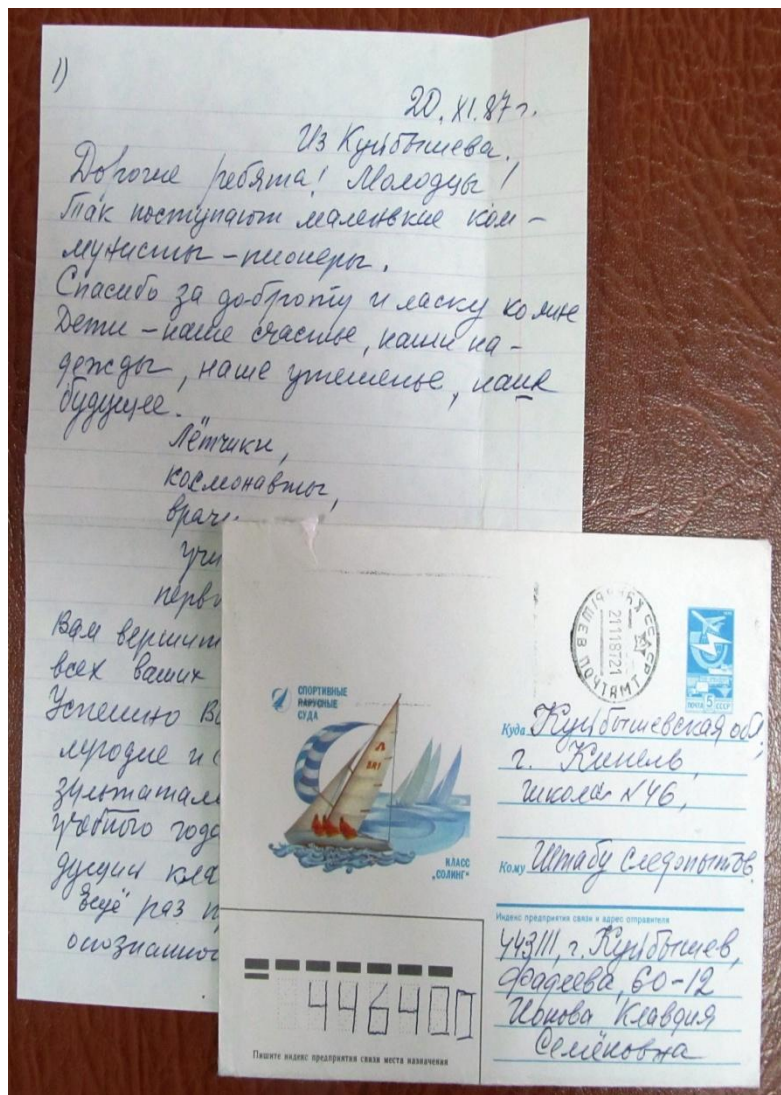 1)
20.XI.87г.
Из Куйбышева.
Дорогие ребята! Молодцы!
Так поступают маленькие ком-
мунисты-пионеры.
Спасибо за доброту и ласку ко мне
Дети - наше счастье, наши на-
дежды, наше утешенье, наше
будущее.
Лётчики,
космонавты,
врачи
учи
перво
Вам вершит
всех ваших
Успешно Ва
лугодие и с
зультатами
учебного года
дущий кла
Ещё раз п
СПОРТИВНЫЕ
ПАРУСНЫЕ
СУДА
SR1
КЛАСС
"СОЛИНГ"
СССР КУЙБЫШЕВ ПОЧТАМТ
21118721
ПОЧТА 5 СССР
Куда Куйбышевская обл,
г. Кинель,
школа N46,
Кому Штабу следопытов.
Индекс предприятия связи и адрес отправителя
443111, г. Куйбышев,
Фадеева, 60-12
Ионова Клавдия
Семёновна
446400
Пишите индекс предприятия связи места назначения